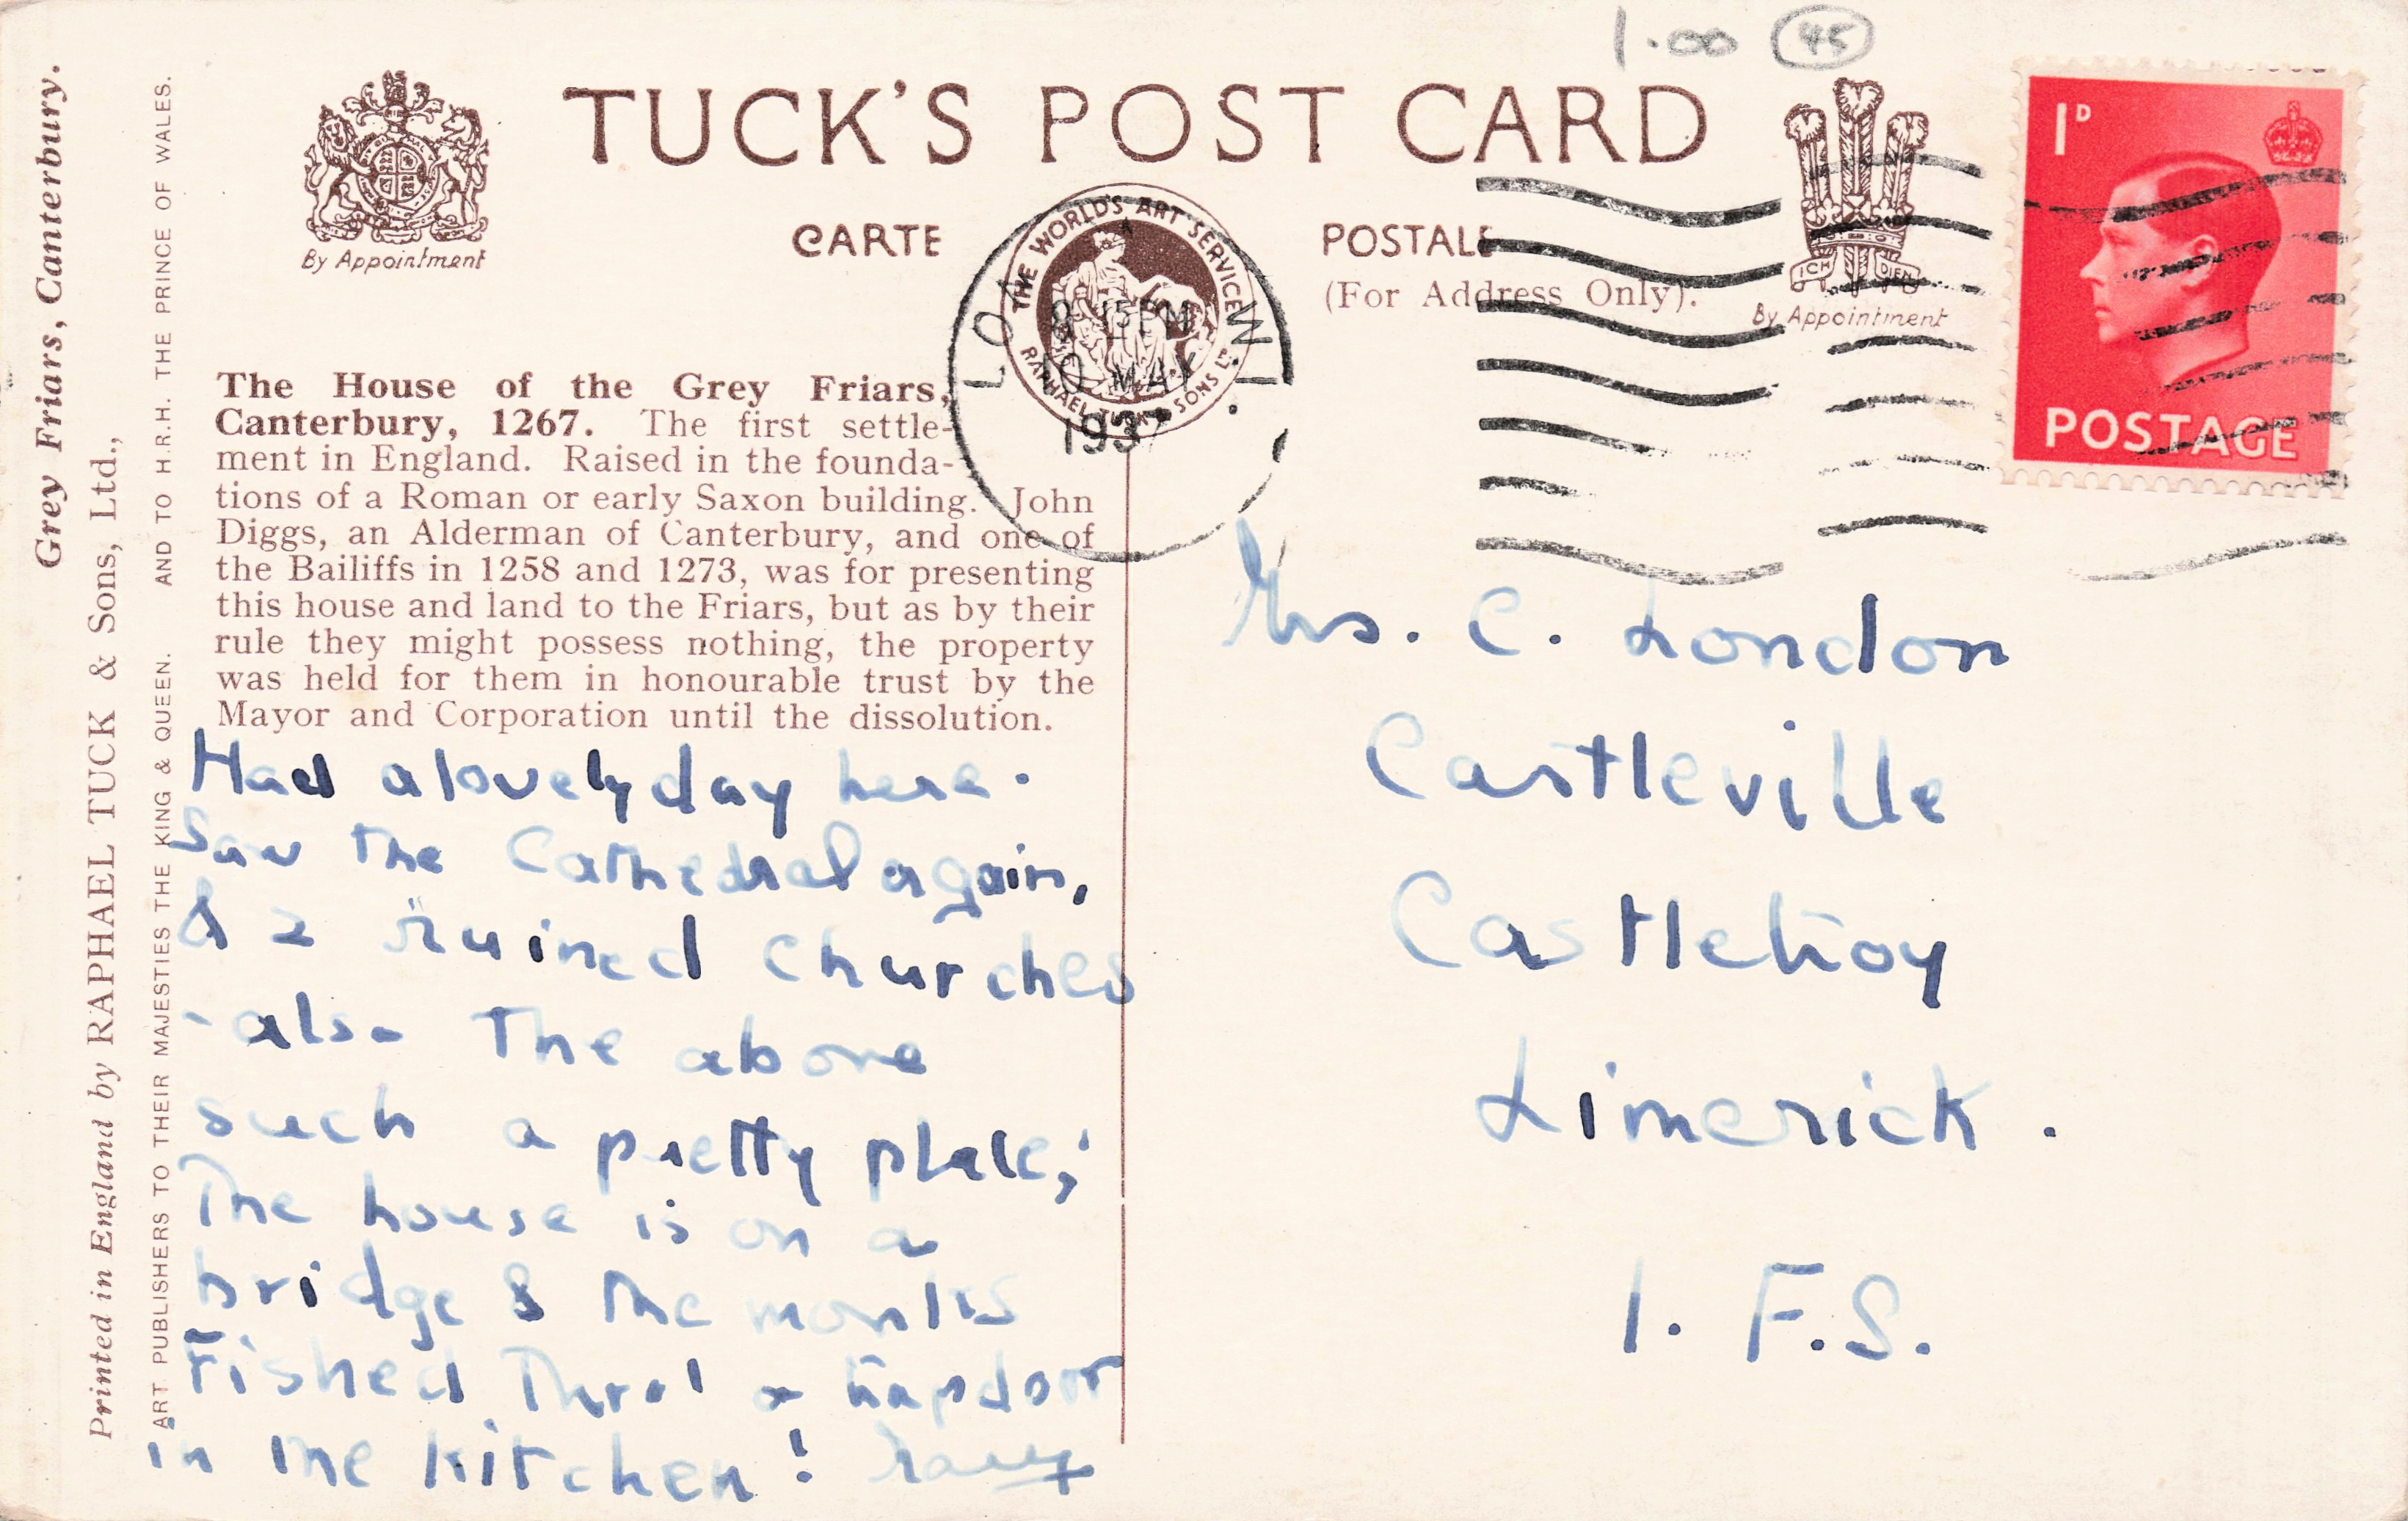 1.00 45
TUCK'S POST CARD
By Appointment
CARTE POSTALE
(For Address Only).
By Appointment
ICH DIEN
THE WORLD'S ART SERVICE
RAPHAEL TUCK & SONS LTD
8 15 PM
10 MAY
1937
LO W.1.
1D
POSTAGE
Grey Friars, Canterbury.
Printed in England by RAPHAEL TUCK & Sons, Ltd.,
ART PUBLISHERS TO THEIR MAJESTIES THE KING & QUEEN. AND TO H.R.H. THE PRINCE OF WALES.
The House of the Grey Friars,
Canterbury, 1267. The first settle-
ment in England. Raised in the founda-
tions of a Roman or early Saxon building. John
Diggs, an Alderman of Canterbury, and one of
the Bailiffs in 1258 and 1273, was for presenting
this house and land to the Friars, but as by their
rule they might possess nothing, the property
was held for them in honourable trust by the
Mayor and Corporation until the dissolution.
Had a lovely day here.
Saw the Cathedral again,
& 2 ruined churches
- also the above
such a pretty place,
The house is on a
bridge & the monks
Fished thro' a trapdoor
in the kitchen!
Mrs. C. London
Castleville
Castletroy
Limerick.
I. F.S.